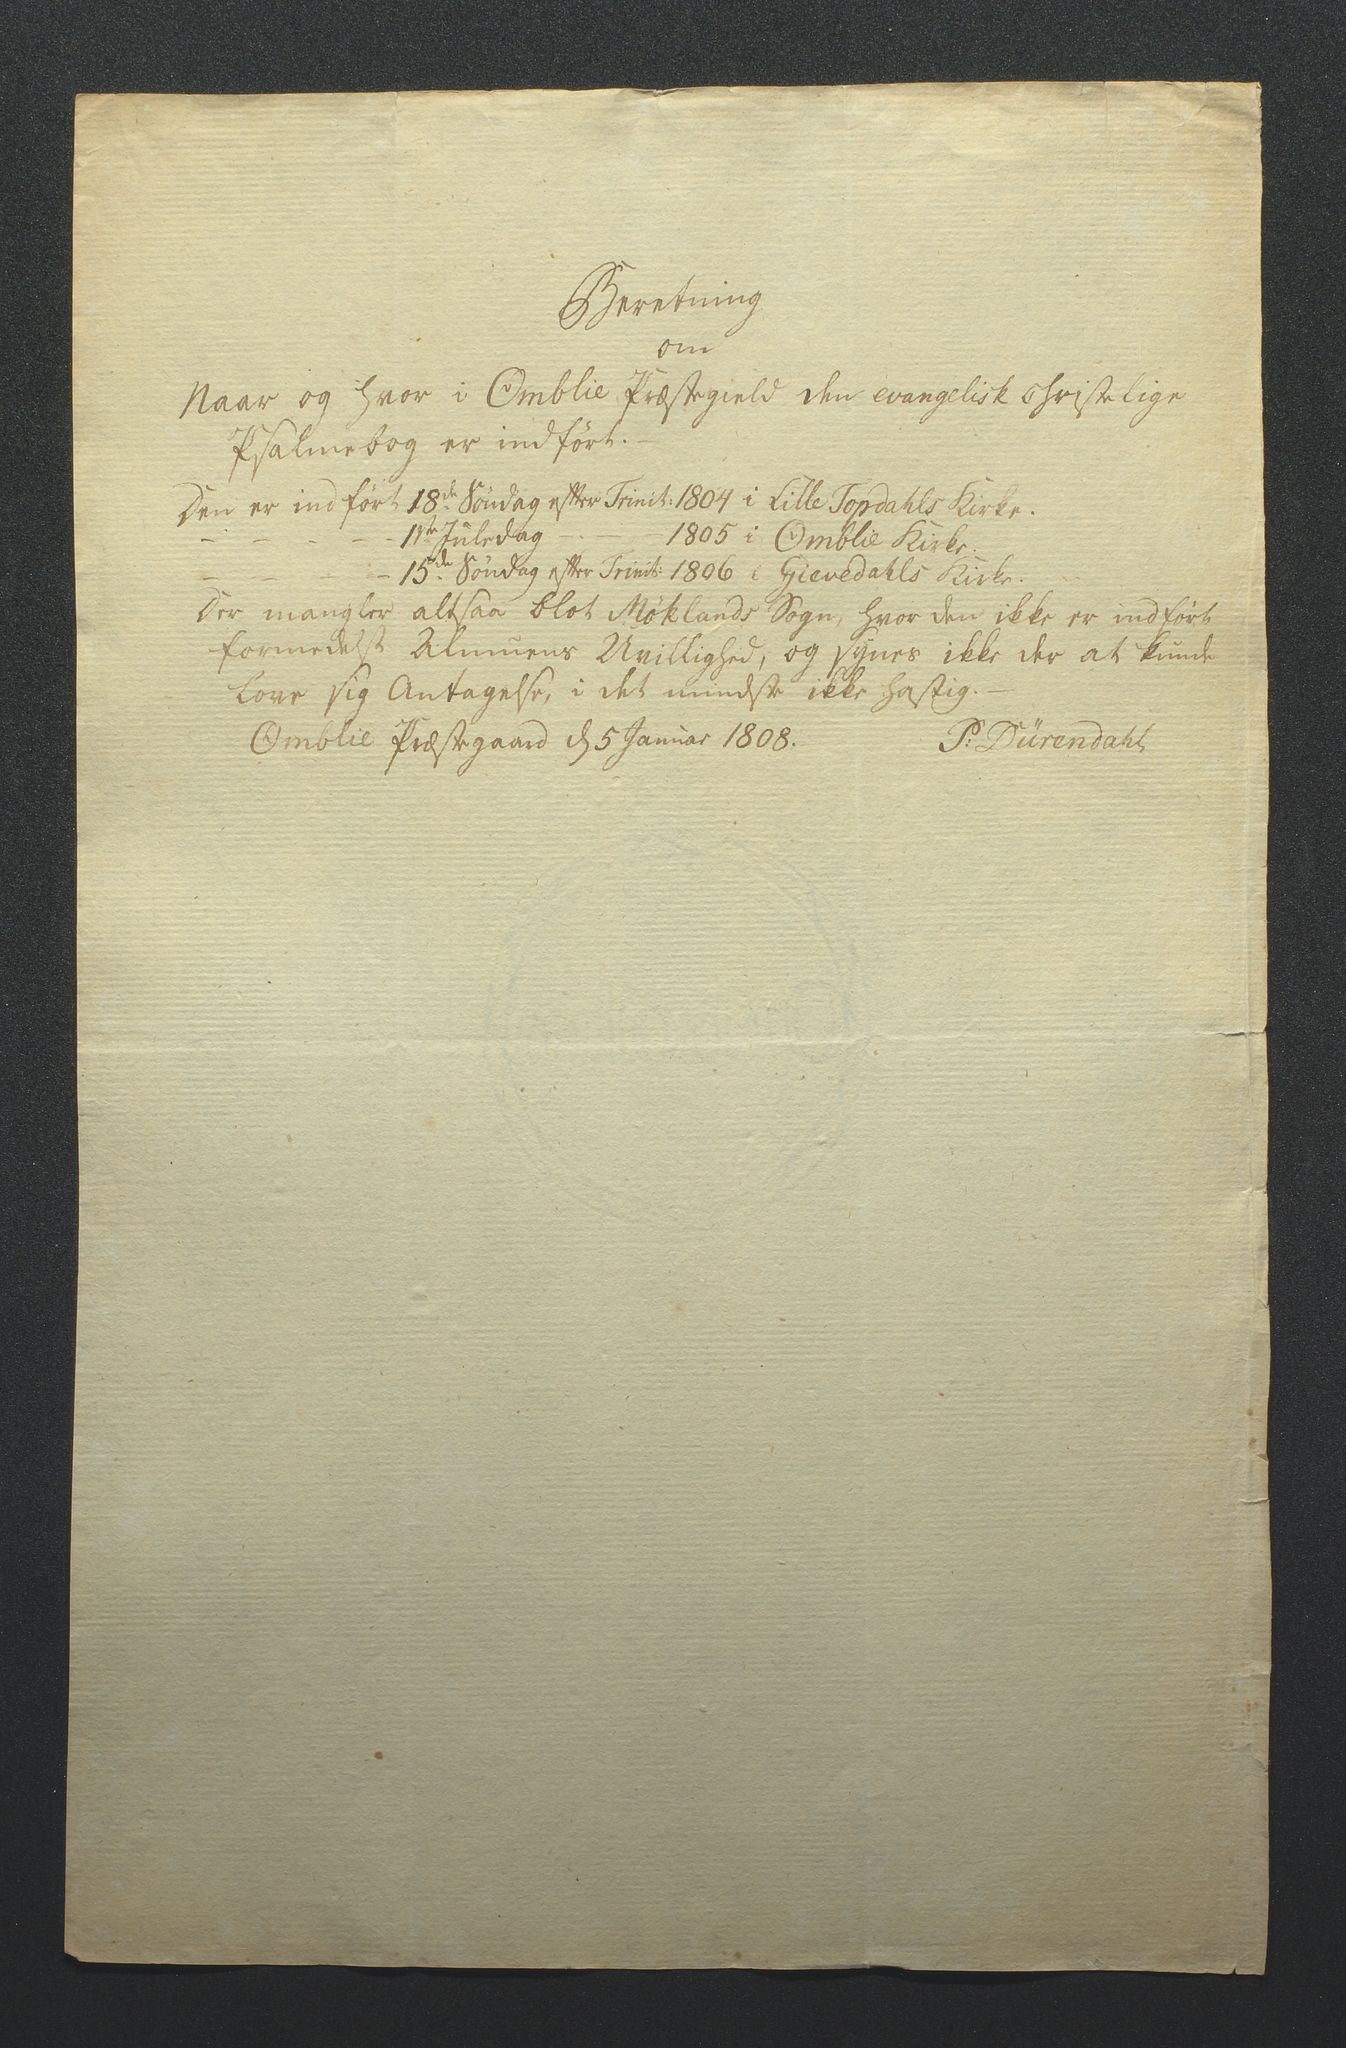 Beretning
om
Naar og hvor i Omblie Præstegield den evangelisk christelige
Psalmebog er indført. –
Den er indført 18de Søndag efter Trinit: 1804 i Lille Topdahls Kirke.
– – – – – 1ste Juledag – – – 1805 i Omblie Kirke.
– – – – – 15de Søndag efter Trinit: 1806 i Gievedahls Kirke.
Der mangler altsaa blot Møklands Sogn, hvor den ikke er indført
formedelst Almuens Uvillighed, og synes ikke der at kunde
love sig Antagelse, i det mindste ikke hastig. –
Omblie Præstegaard d 5 Januar 1808. P: Dürendahl